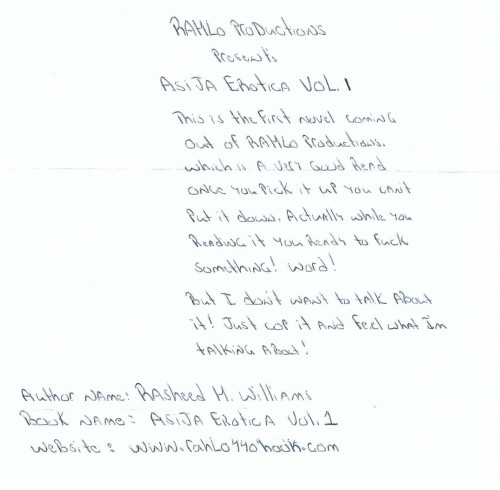 RAHLO PRODUCTIONS
Presents
ASIJA EROTICA VOL. 1
This is the first novel coming
out of RAHLO Productions.
which is A very Good Read
once you pick it up you can't
put it down. Actually while you
Reading it you Ready to fuck
something! Word!
But I don't want to talk About
it! Just cop it and feel what I'm
talking About!
Author Name: RAsheed H. Williams
Book Name: ASIJA EROTICA Vol. 1
website: